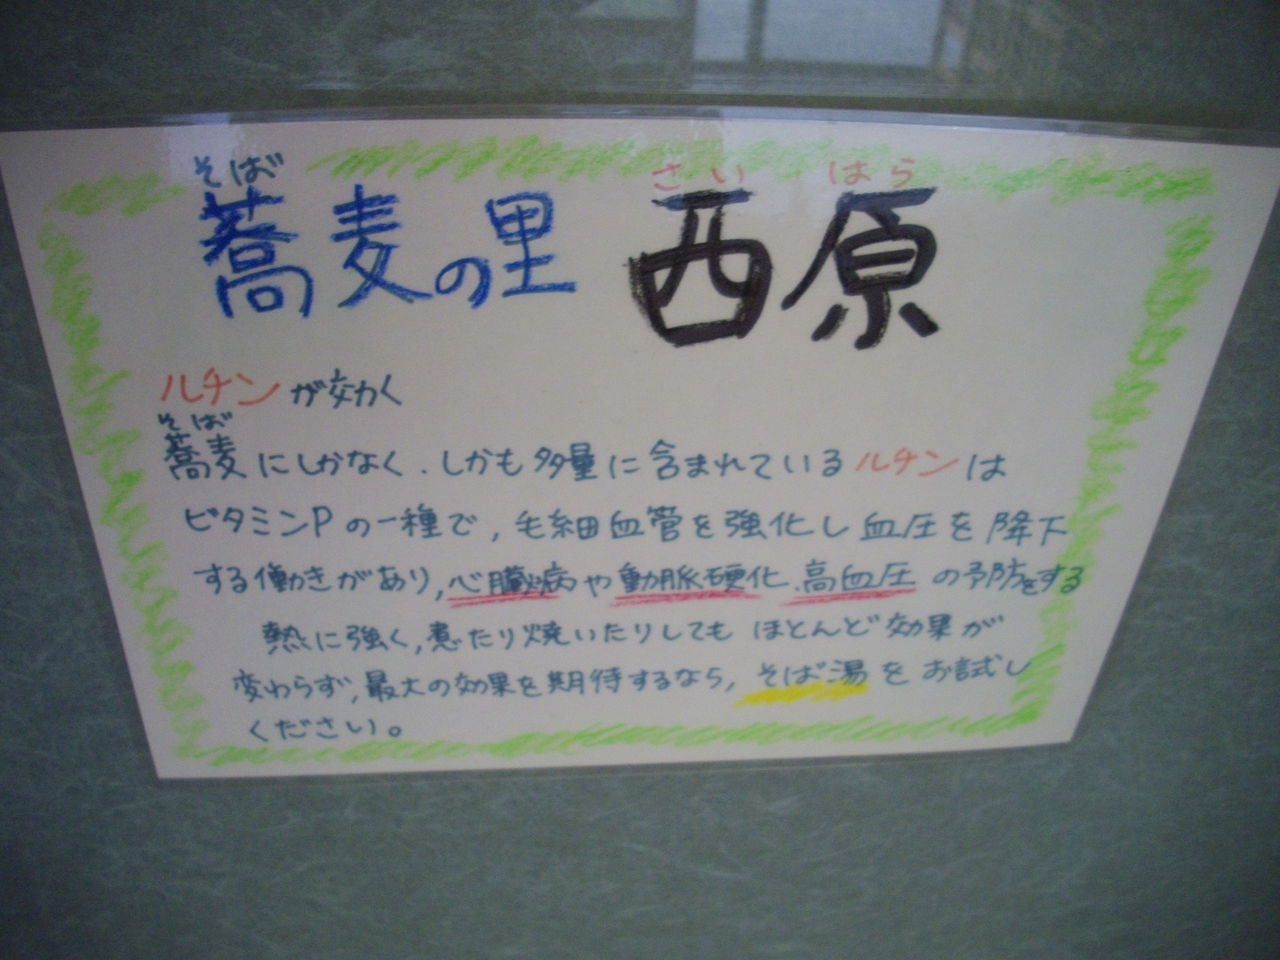 そば さいはら
蕎麦の里 西原
ルチンが効く
そば
蕎麦にしかなく、しかも多量に含まれているルチンは
ビタミンPの一種で、毛細血管を強化し血圧を降下
する働きがあり、心臓病や動脈硬化、高血圧の予防をする
熱に強く、煮たり焼いたりしてもほとんど効果が
変わらず、最大の効果を期待するなら、そば湯をお試し
ください。